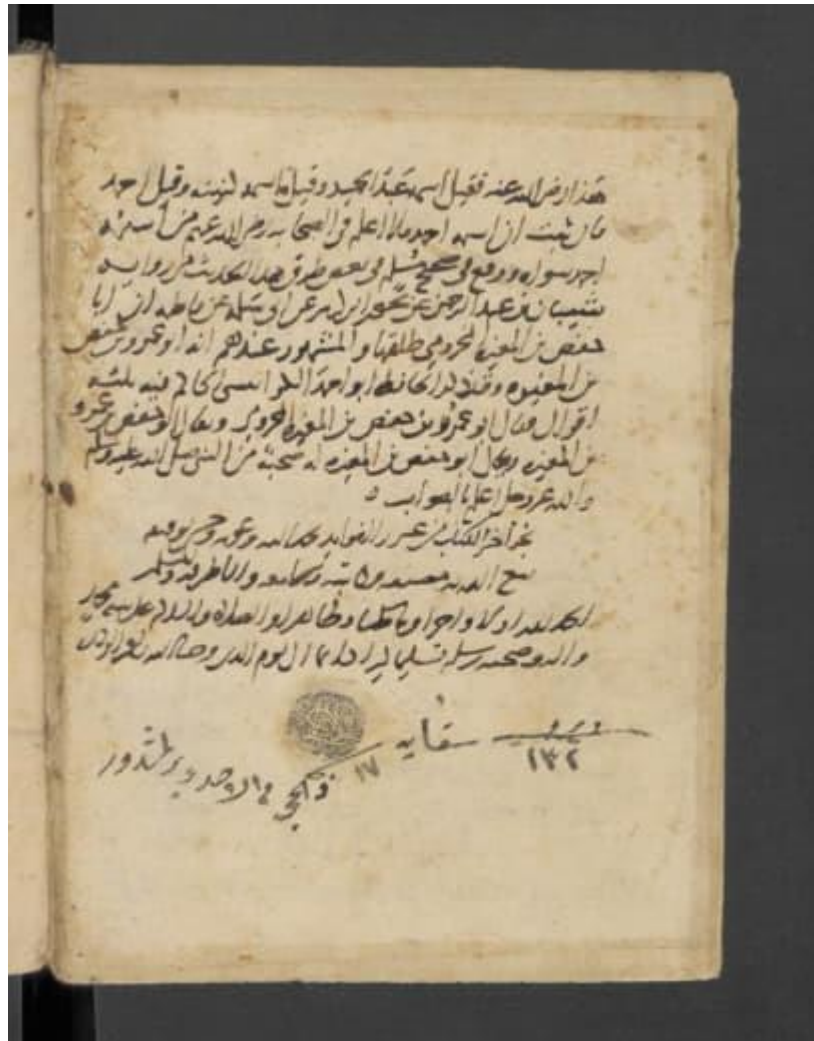 هذا رضى الله عنه فقيل اسمه عبد الحميد وقيل اسمه كنيته وقيل احمد
فان ثبت ان اسمه احمد فلا اعلم في الصحابة رضى الله عنهم من اسمه
احمد سواه ووقع في صحيح مسلم في بعض طرق هذا الحديث من رواية
شيبان بن عبد الرحمن عن يحيى عن ابي سلمة عن فاطمة ان ابا
حفص بن المغيرة المخزومي طلقها والمشهور عندهم انه ابو عمرو بن حفص
بن المغيرة وقد ذكر الحافظ ابو احمد الحاكم فيه ثلثة
اقوال فقال ابو عمرو بن حفص بن المغيرة المخزومي ويقال ابو حفص بن عمرو
بن المغيرة ويقال ابو حفص بن المغيرة له صحبة من النبي صلى الله عليه وسلم
والله عز وجل اعلم بالصواب ه
نجز اخر الكتاب من غرر الفوايد بحمد الله وعونه وحسن توفيقه
نفع الله به وكاتبه والناظر فيه
الحمد لله اولا واخرا وباطنا وظاهرا والصلاة والسلام على محمد
واله وصحبه وسلم تسليما كثيرا دايما الى يوم الدين وحسبنا الله ونعم الوكيل
سقايه
١٣٢
١٧